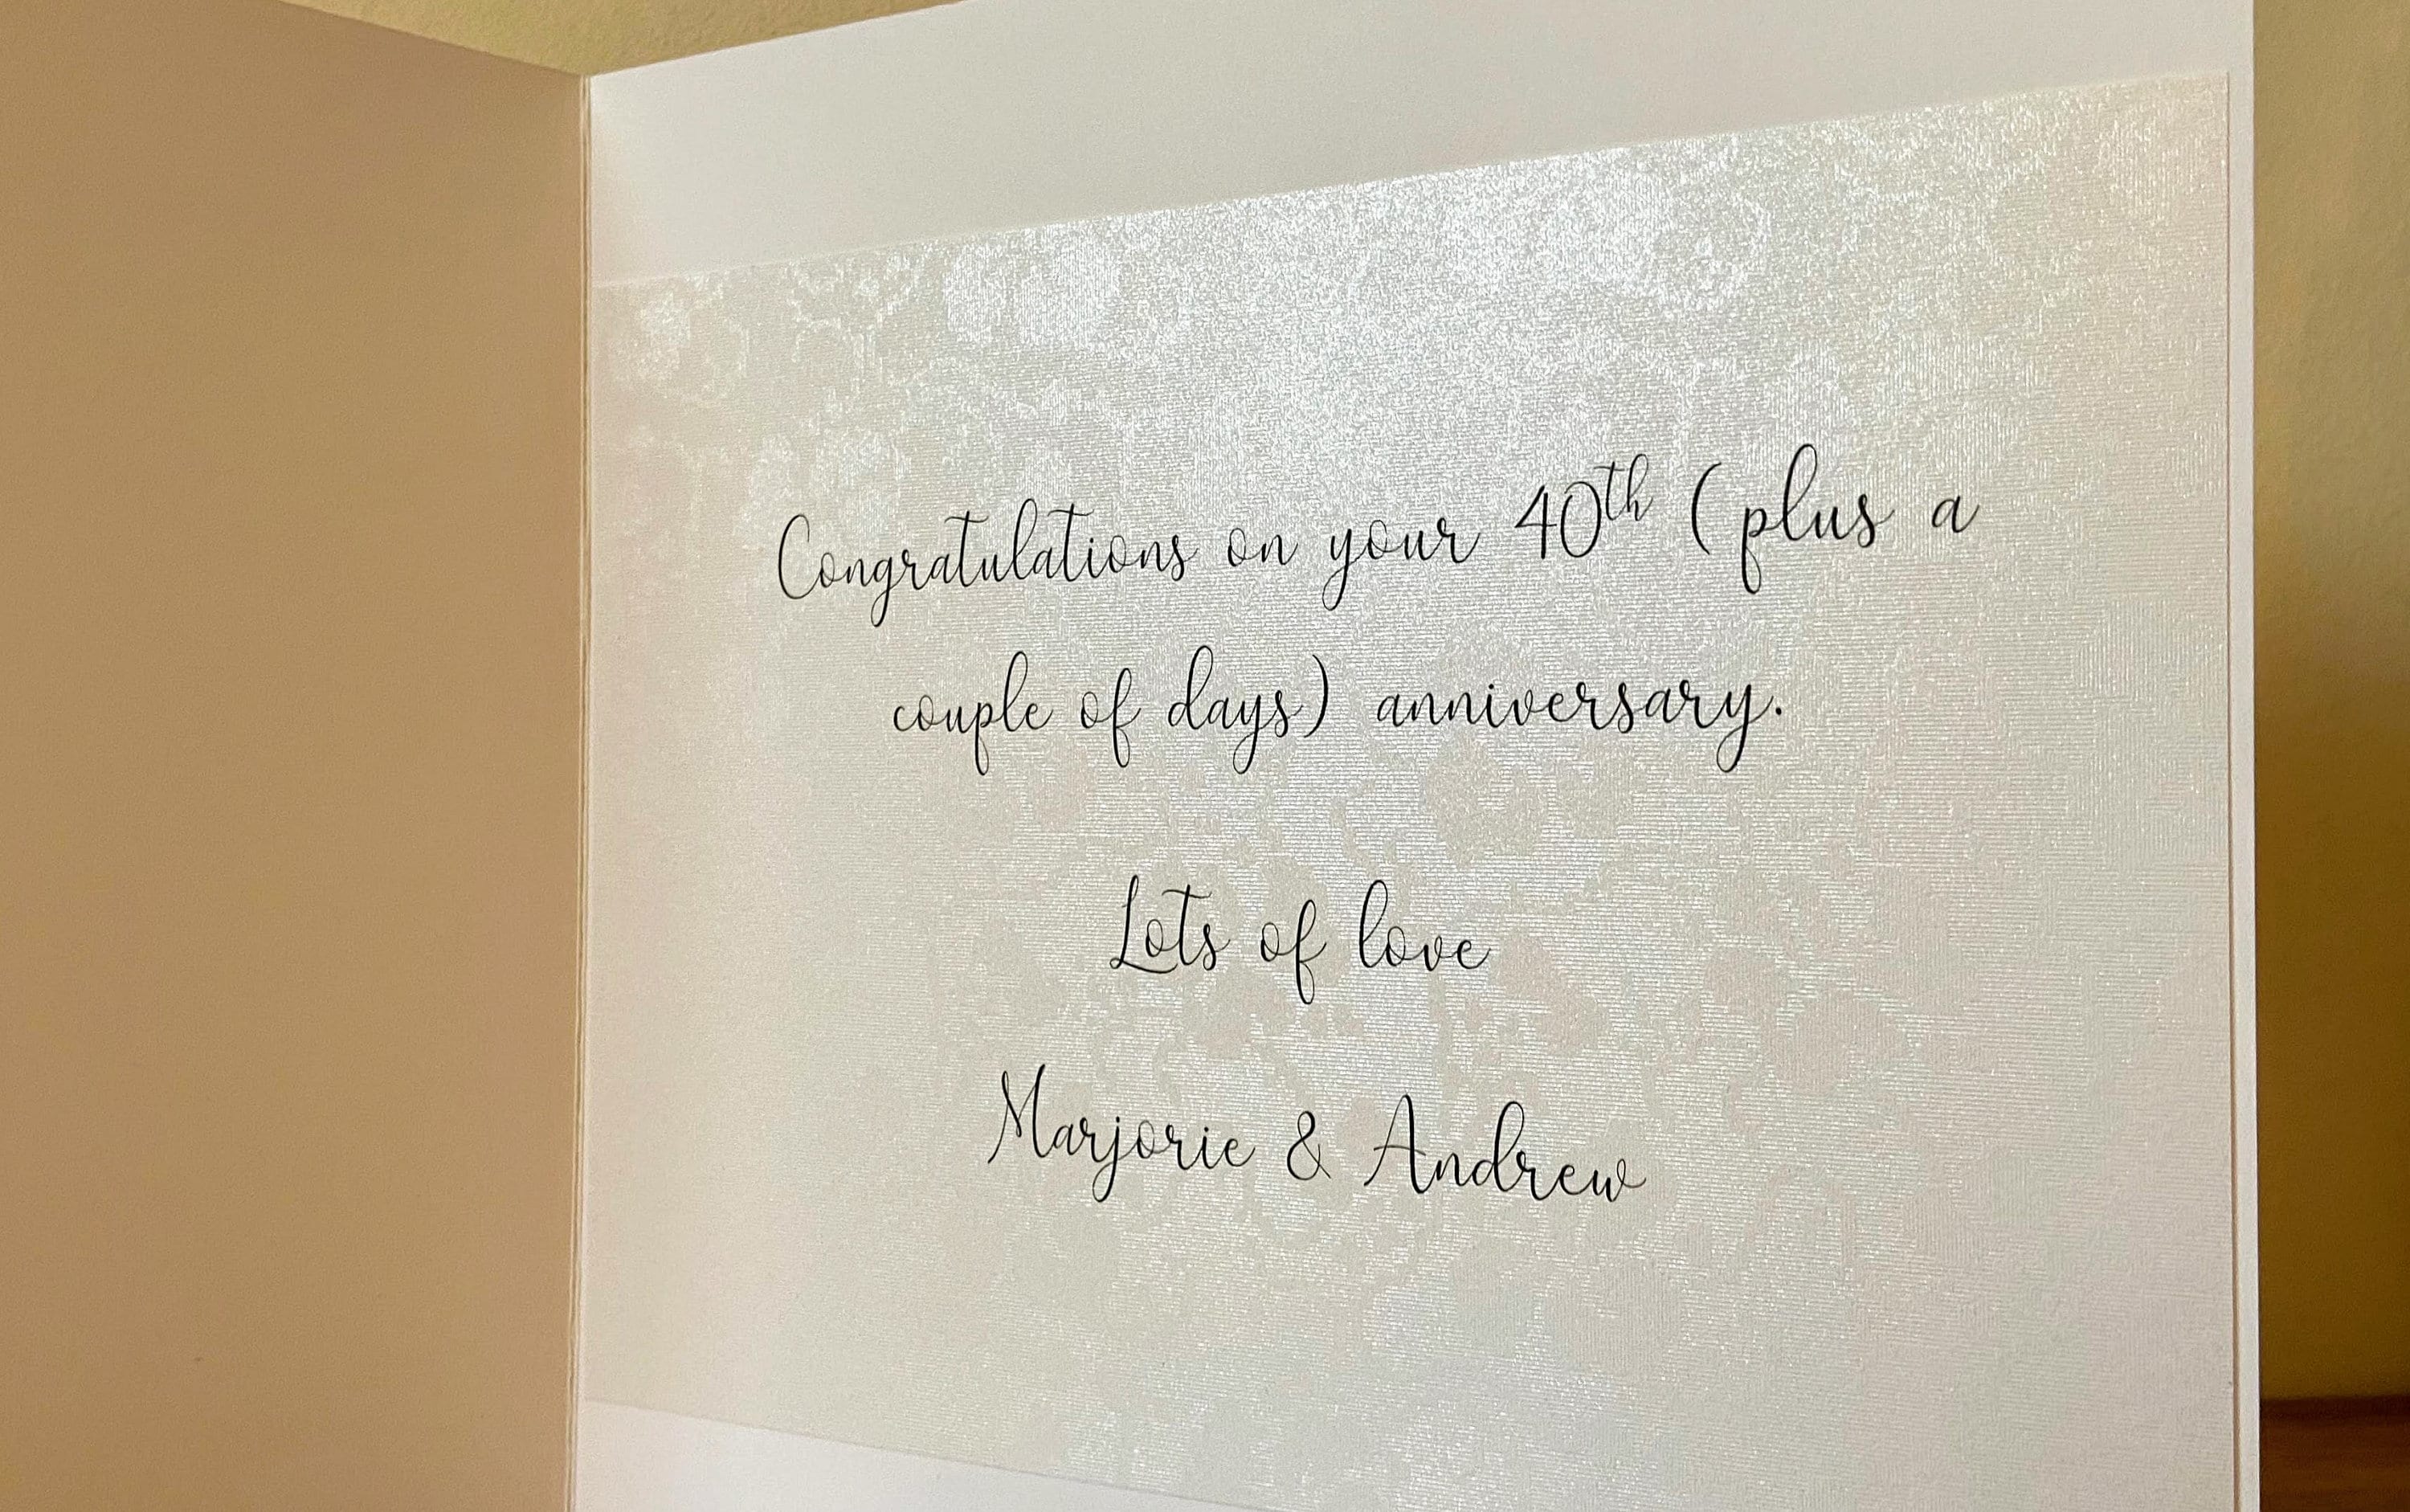 Congratulations on your 40th (plus a
couple of days) anniversary.
Lots of love
Marjorie & Andrew